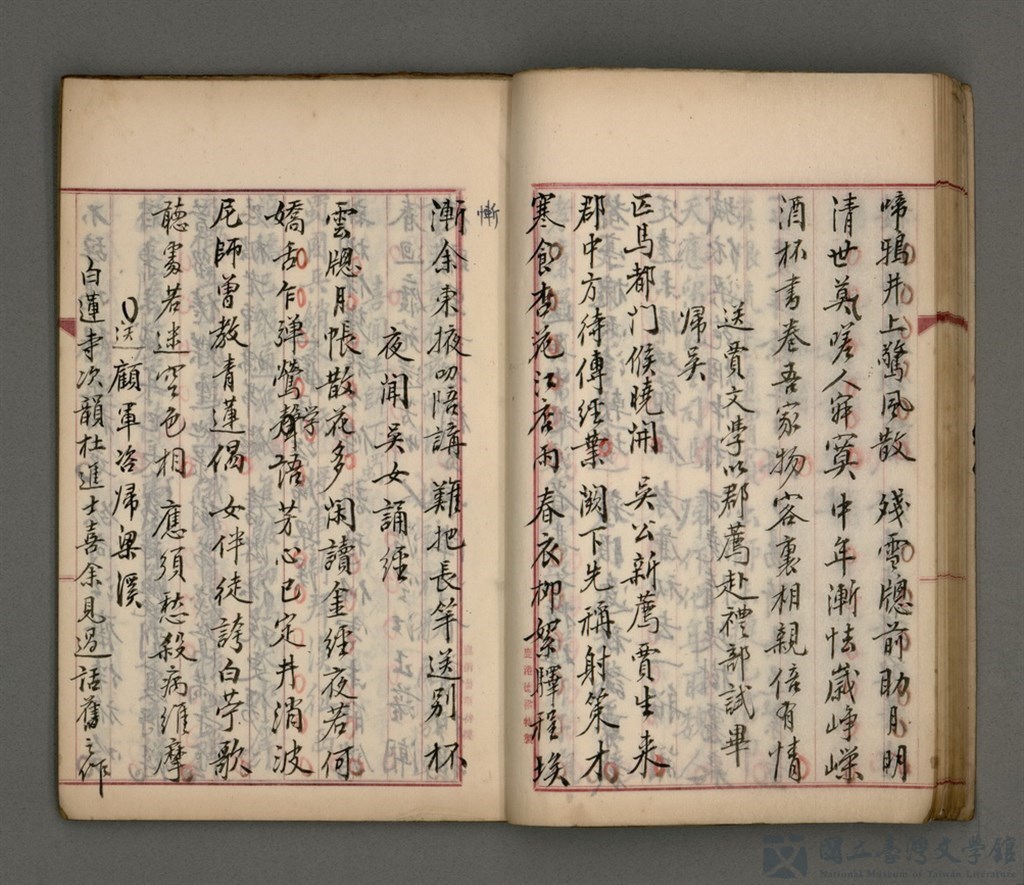 啼鴉井上驚風散 殘雪牕前助月明
清世莫嗟人寂寞 中年漸怯歲崢嶸
酒杯書卷吾家物 客裏相親倍有情
送賈文學以郡薦赴禮部試畢
帰吳
匹馬都門候曉開 吳公新薦賈生来
郡中方待傳經業 闕下先稱射策才
寒食杏花江店雨 春衣柳絮驛程埃
慚
漸余東掖叨陪講 難把長竿送別杯
夜聞吳女誦經
雲牕月帳散花多 閑讀金經夜若何
嬌舌乍弾鶯聲語 芳心已定井消波
学
尼師曾教青蓮偈 女伴徒誇白苧歌
聴處若迷空色相 應須愁殺病維摩
送顧軍咨帰梁溪
白蓮寺次韻杜進士喜余見過話舊之作
國立臺灣文學館
National Museum of Taiwan Literature